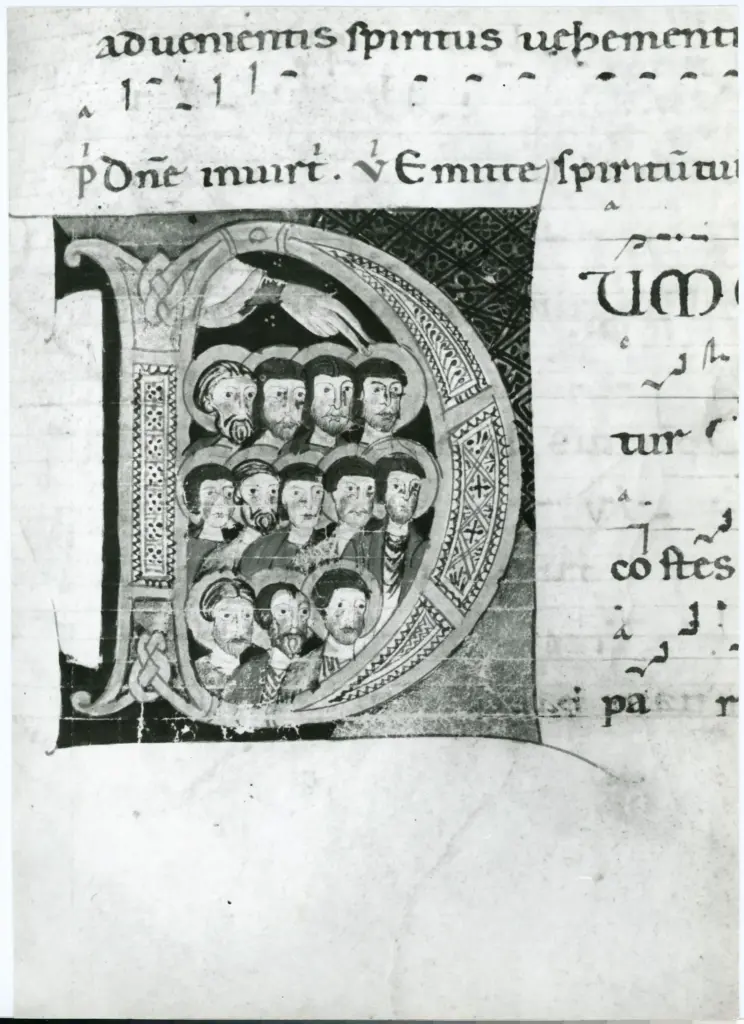 advenientis spiritus vehementi
p Dñe inuirt. v Emitte spiritũ tu
D ũm
tur
costes
pa r